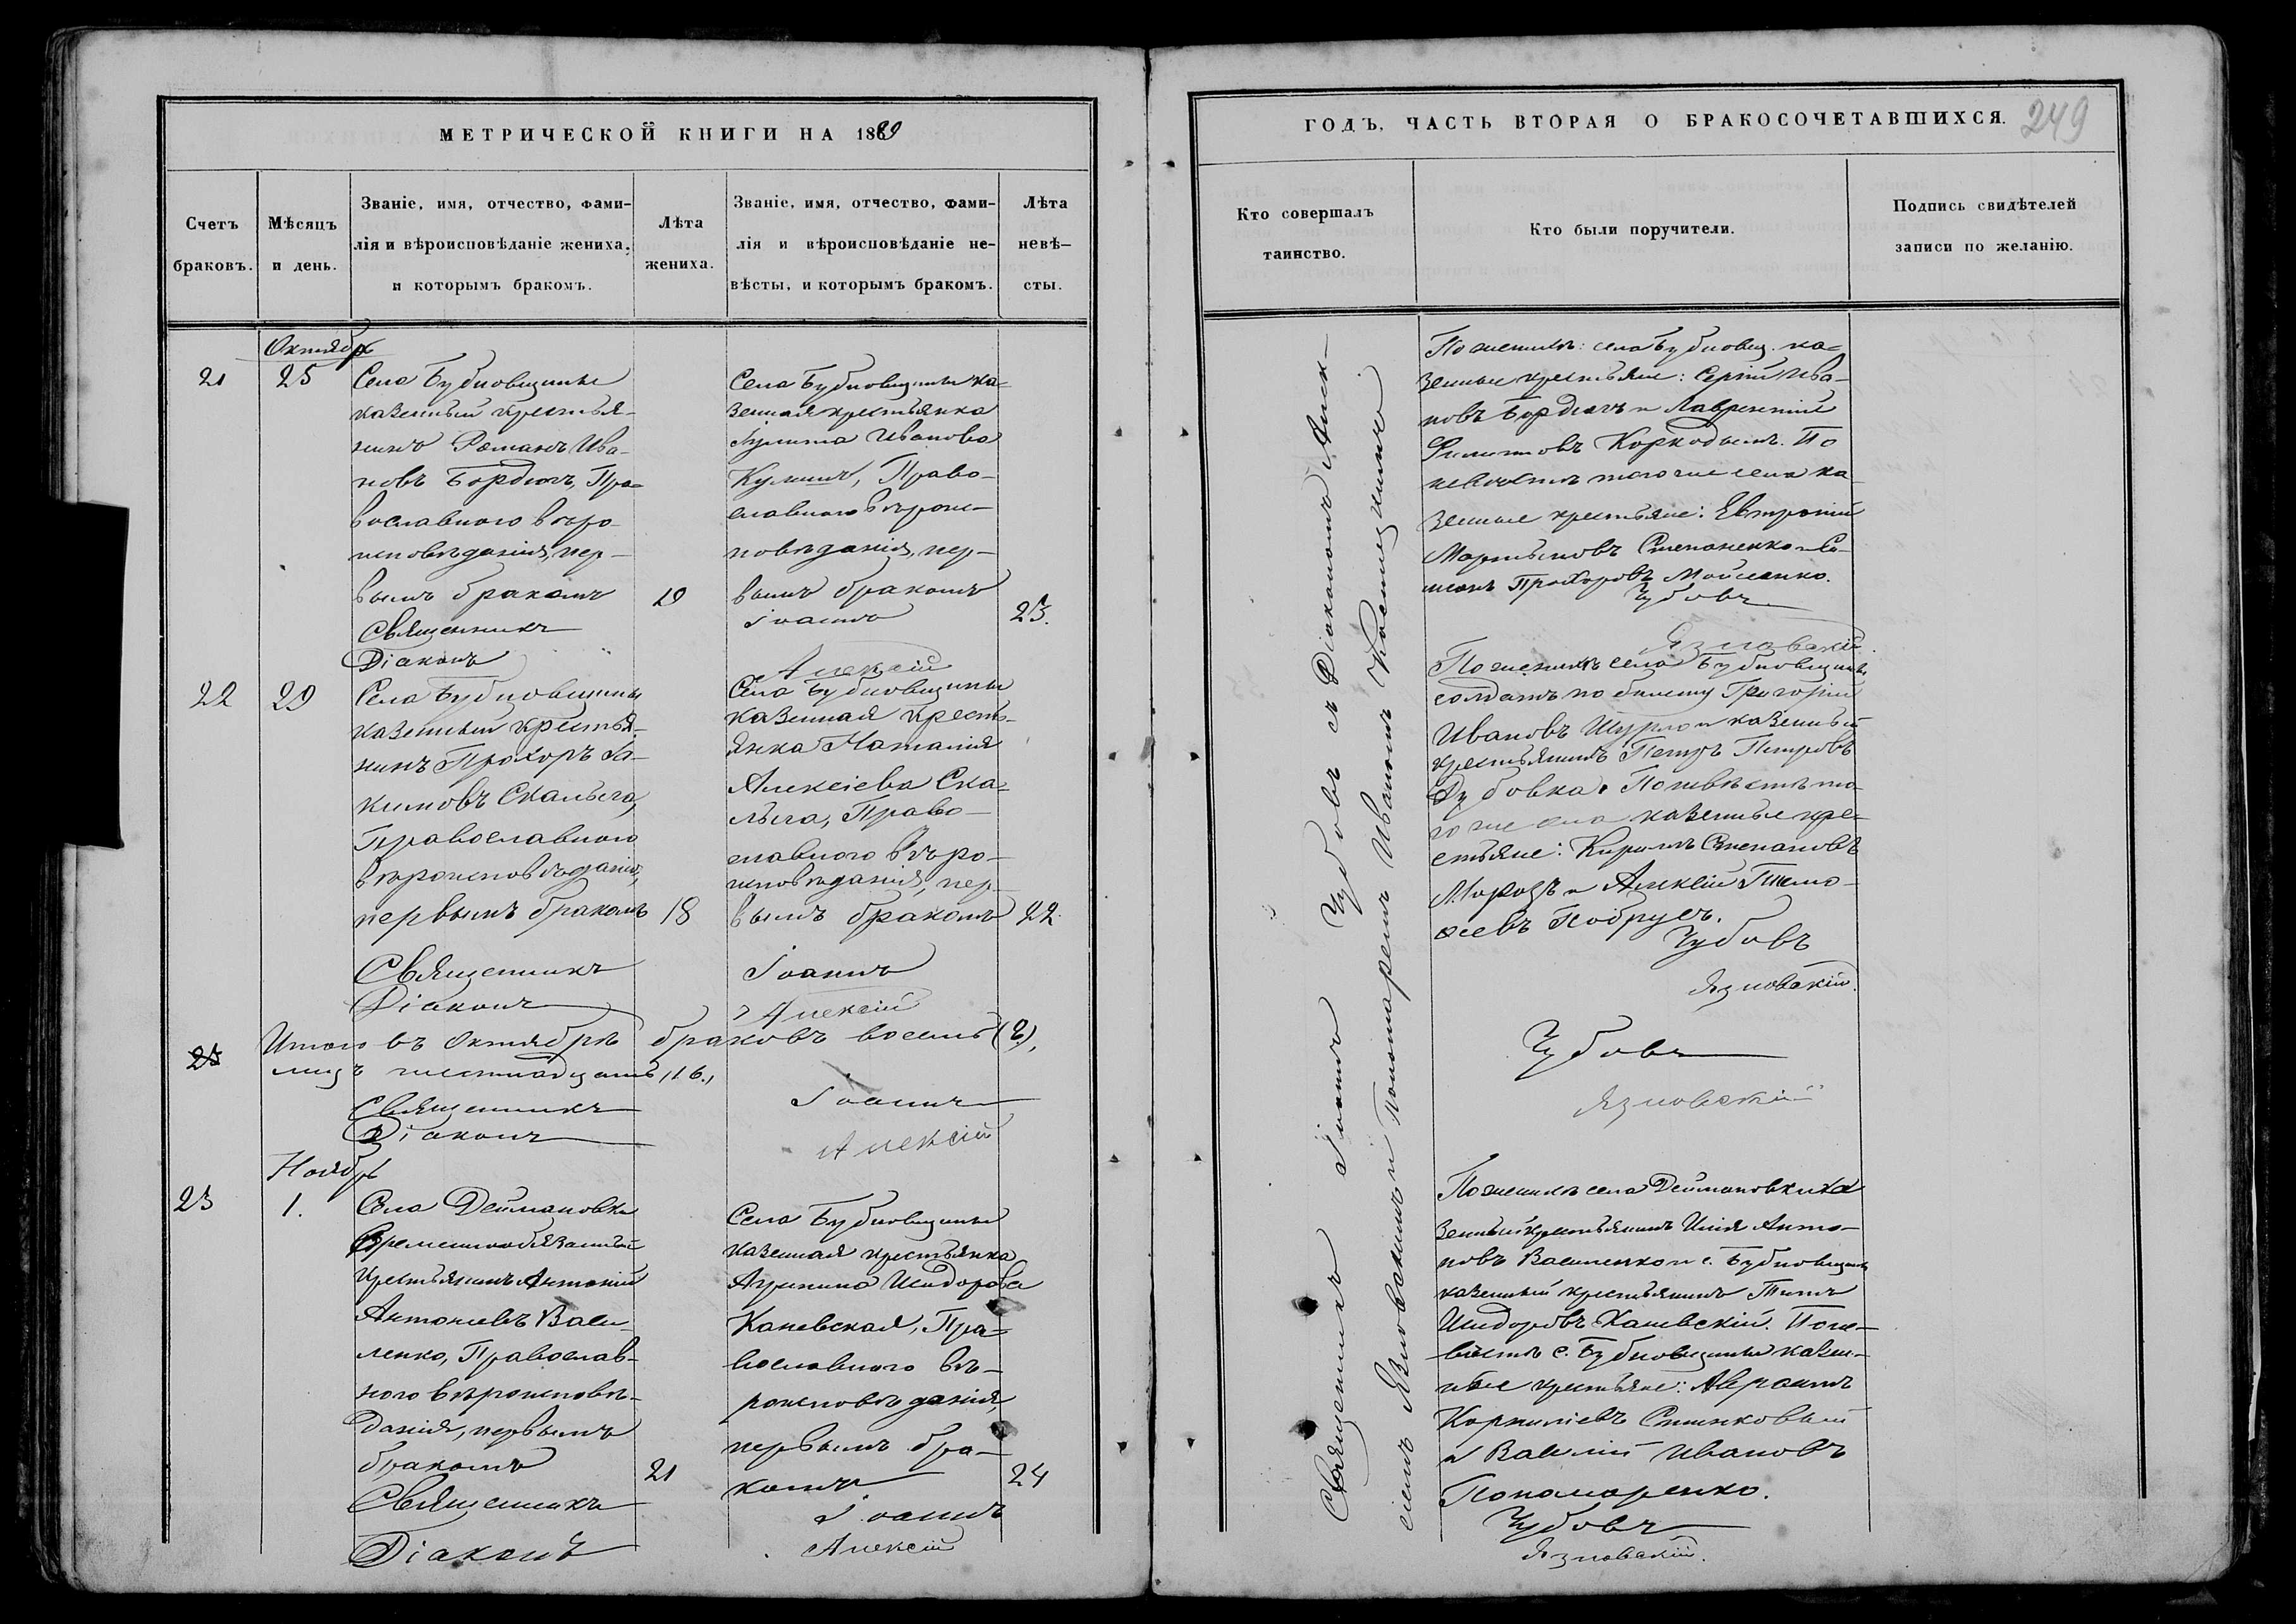 МЕТРИЧЕСКОЙ КНИГИ НА 1869
Счетъ
браковъ.
Мѣсяцъ
и день.
Званіе, имя, отчество, фами-
лія и вѣроисповѣданіе жениха,
и которымъ бракомъ.
Лѣта
жениха.
Званіе, имя, отчество, фами-
лія и вѣроисповѣданіе не-
вѣсты, и которымъ бракомъ.
Лѣта
невѣ-
сты.
Октябрь
21
25
Села Бубновщины
казенный крестья-
нинъ Романъ Ива-
новъ Бардюгъ, Пра-
вославнаго вѣро-
исповѣданія, пер-
вымъ бракомъ
19
Села Бубновщины ка-
зенная крестьянка
Иванова
Православнаго вѣроис-
повѣданія, пер-
вымъ бракомъ
23.
Священникъ Іоаннъ
Діаконъ Алексій
22
29
Села Бубновщины
казенный крестья-
нинъ Прохоръ Іа-
кимовъ Скалыга,
Православнаго
вѣроисповѣданія,
первымъ бракомъ
18
Села Бубновщины
казенная кресть-
янка Наталія
Алексіева Ска-
лыга, Право-
славнаго вѣро-
исповѣданія, пер-
вымъ бракомъ
22
Священникъ Іоаннъ
Діаконъ Алексій
Итого въ Октябрѣ браковъ восемь (8),
лицъ шестнадцать, 16.,
Священникъ Іоаннъ
Діаконъ Алексій
Ноябрь
23
1.
Села Деймановки
Временнообязанный
крестьянинъ Антоній
Антоніевъ Васи-
ленко, Православ-
наго вѣроисповѣ-
данія, первымъ
бракомъ
21
Села Бубновщины
казенная крестьянка
Агрипина Исидорова
Каневская, Пра-
вославнаго вѣ-
роисповѣданія,
первымъ бра-
комъ
24
Священникъ Іоаннъ
Діаконъ Алексій
ГОДЪ, ЧАСТЬ ВТОРАЯ О БРАКОСОЧЕТАВШИХСЯ.
249
Кто совершалъ
таинство.
Кто были поручители.
Подпись свидѣтелей
записи по желанію.
Священникъ Іоаннъ Чубовъ съ Діакономъ Алек-
сіемъ Язловскимъ и Пономаремъ Иваномъ
По женихѣ: села Бубновщ. ка-
зенные крестьяне: Сергій Ива-
новъ Бардюгъ и Лаврентій
Филиповъ Коркодымъ. По
невѣстѣ того же села ка-
зенные крестьяне: Евтропій
Мартыновъ Степаненко и Си-
меонъ Прохоровъ Мойсенко.
Чубовъ
Язловскій.
По женихѣ села Бубновщины
солдатъ по билету Григорій
Ивановъ Шурло и казенный
крестьянинъ Петръ Петровъ
Дубовка. По невѣстѣ то-
го же села казенные кре-
стьяне: Кирилъ Степановъ
Морозъ и Алексій Тимо-
феевъ
Чубовъ
Язловскій.
Чубовъ
Язловскій
По женихѣ села Деймановки ка
зенный крестьянинъ Илія Анто-
новъ Василенко и с. Бубновщины
казенный крестьянинъ Титъ
Исидоровъ Каневскій. По не-
вѣстѣ с. Бубновщины казен-
ные крестьяне: Авраамъ
Корниліевъ
и Василій Ивановъ
Пономаренко.
Чубовъ
Язловскій.